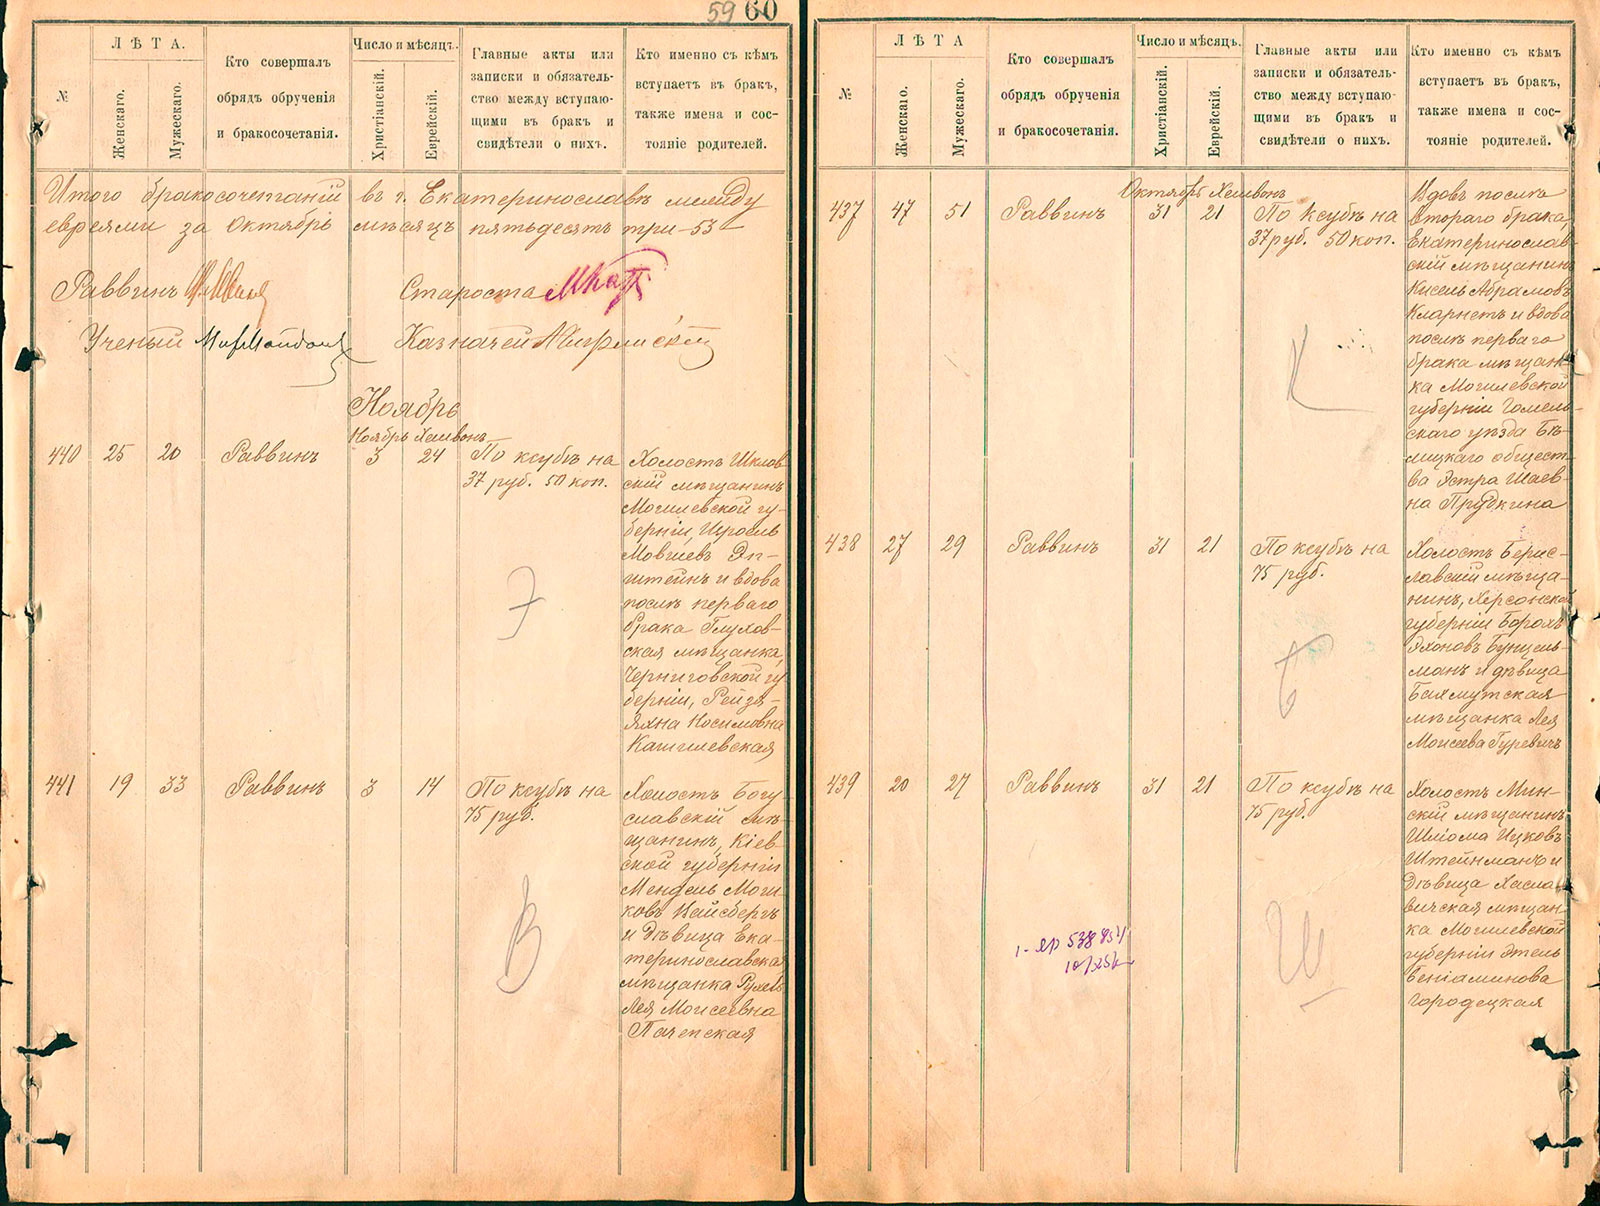 59 60
№
ЛѢТА.
Женскаго.
Мужескаго.
Кто совершалъ
обрядъ обрученія
и бракосочетанія.
Число и мѣсяцъ.
Христіанскій.
Еврейскій.
Главные акты или
записки и обязатель-
ство между вступаю-
щими въ бракъ и
свидѣтели о нихъ.
Кто именно съ кѣмъ
вступаетъ въ бракъ,
также имена и сос-
тояніе родителей.
Итого бракосочетаній въ г. Екатеринославѣ между
евреями за Октябрь мѣсяцъ пятьдесятъ три-53
Раввинъ
Староста
Ученый
Казначей
Ноябрь
Ноябрь Хешвонъ
440 25 20 Раввинъ 3 24
По ксубѣ на
37 руб. 50 коп.
Холостъ Шклов-
скій мѣщанинъ
Могилевской гу-
берніи, Исроель
Мовшевъ Эп-
штейнъ и вдова
послѣ перваго
брака Глухов-
ская мѣщанка,
Черниговской гу-
берніи, Рейзя-
Яхна Носимовна
Кашилевская
Э
441 19 33 Раввинъ 3 14
По ксубѣ на
75 руб.
Холостъ Богу-
славскій мѣ-
щанинъ, Кіев-
ской губерніи
Мендель Мош-
ковъ Вайсбергъ
и дѣвица Ека-
теринославская
мѣщанка Рухель
Лея Моисеевна
Пачепская
В
№
ЛѢТА
Женскаго.
Мужескаго.
Кто совершалъ
обрядъ обрученія
и бракосочетанія.
Число и мѣсяцъ.
Христіанскій.
Еврейскій.
Главные акты или
записки и обязатель-
ство между вступаю-
щими въ бракъ и
свидѣтели о нихъ.
Кто именно съ кѣмъ
вступаетъ въ бракъ,
также имена и сос-
тояніе родителей.
Октябрь Хешвонъ
437 47 51 Раввинъ 31 21
По ксубѣ на
37 руб. 50 коп.
Вдовъ послѣ
втораго брака,
Екатеринослав-
скій мѣщанинъ
Кисель Абрамовъ
Кларнетъ и вдова
послѣ перваго
брака мѣщан-
ка Могилевской
губерніи Гомель-
скаго уѣзда Бѣ-
лицкаго общест-
ва Эстра Шаев-
на Прудкина
К
438 27 29 Раввинъ 31 21
По ксубѣ на
75 руб.
Холостъ Берис-
лавскій мѣща-
нинъ, Херсонской
губерніи Борохъ
Эхоновъ Бунцель-
манъ и дѣвица
Бахмутская
мѣщанка Лея
Моисеева Гуревичъ
Б
439 20 27 Раввинъ 31 21
По ксубѣ на
75 руб.
Холостъ Мин-
скій мѣщанинъ
Шліома Ицковъ
Штейнманъ и
дѣвица Хасла-
вичская мѣщан-
ка Могилевской
губерніи Этель
Беніаминова
Городецкая
Ш